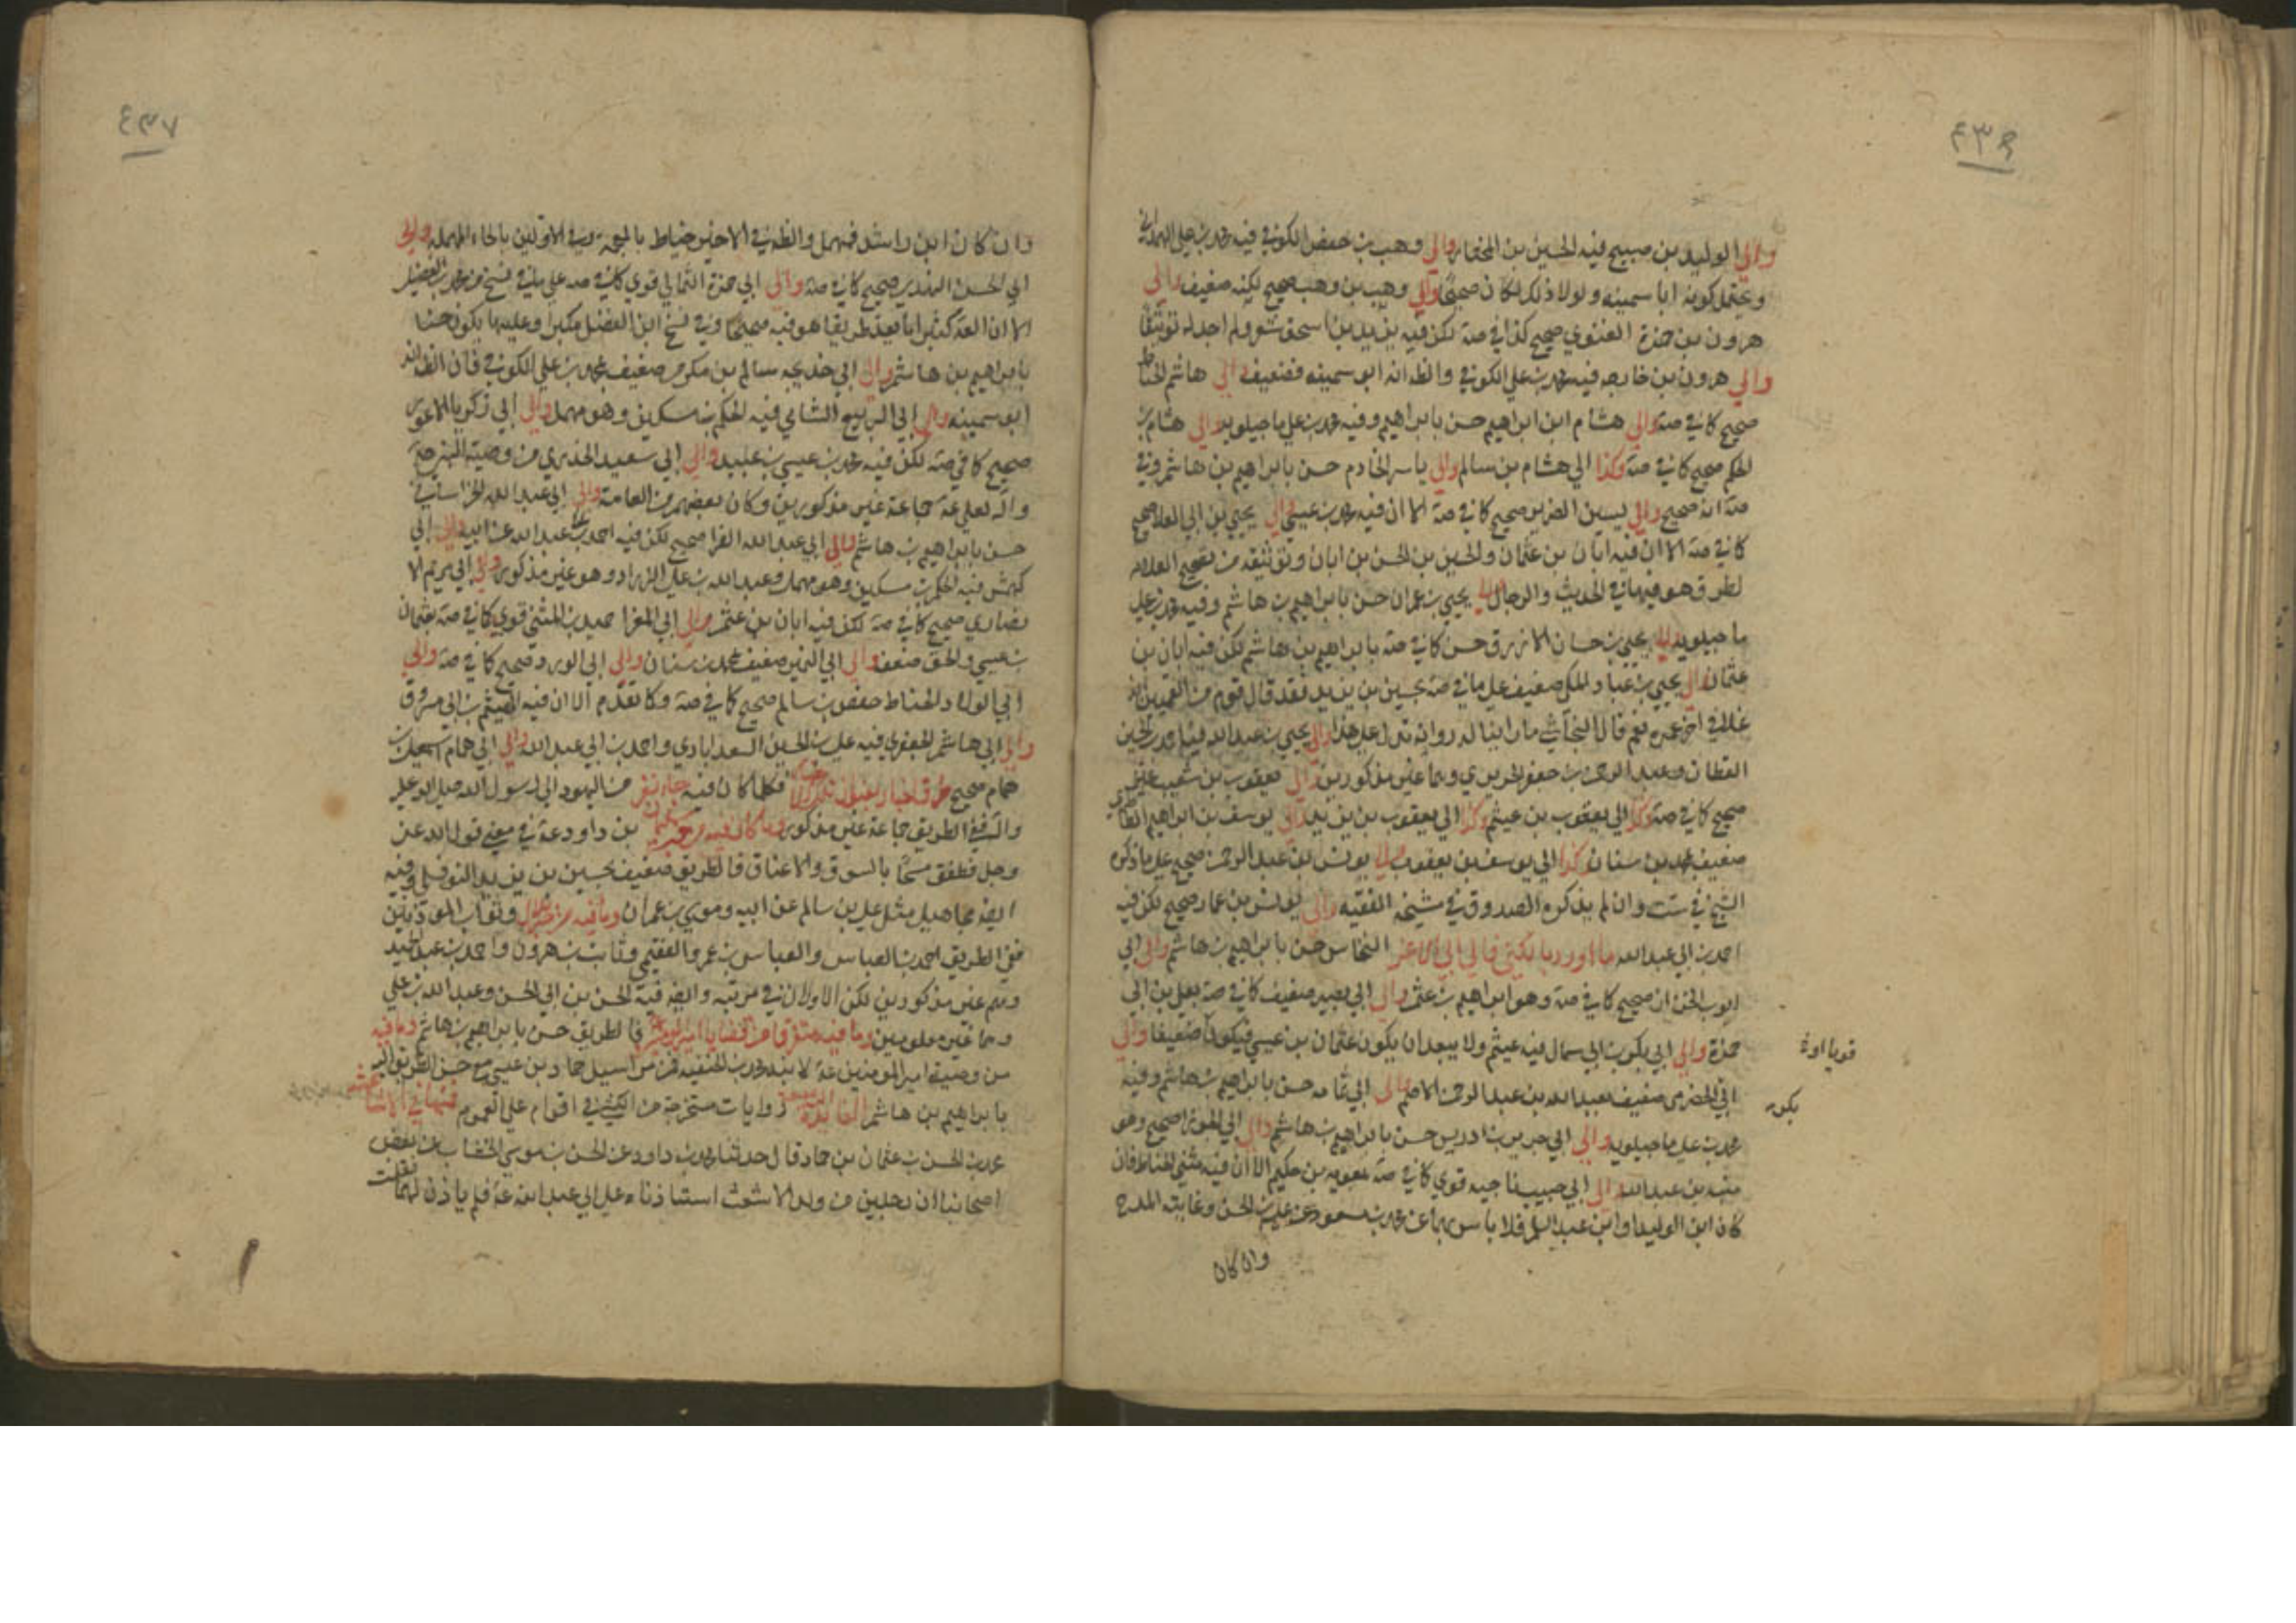 ٤٣٦
والي الوليد بن صبيح فيه الحسين بن المختار والي وهب بن حفص الكوفي فيه محمد بن علي الهمداني
ويحتمل كونه ابا سمينه ولولا ذلك لكان صحيحا والي وهيب بن وهب صحيح لكنه ضعيف والي
هرون بن حمزة الغنوي صحيح كذا في صة لكن فيه يزيد بن اسحق شعر ولم اجد له توثيقا
والي هرون بن خارجه فيه محمد بن علي الكوفي والظ انه ابو سمينه فضعيف والي هاشم الحناط
صحيح كما في صة والي هشام ابن ابراهيم حسن بابراهيم وفيه محمد بن علي ماجيلويه والي هشام بن
الحكم صحيح كما في صة وكذا الي هشام بن سالم والي ياسر الخادم حسن بابراهيم بن هاشم وفي
صة انه صحيح والي ياسين الضرير صحيح كما في صة الا ان فيه محمد بن عيسي والي يحيي بن ابي العلا صحيح
كما في صة الا ان فيه ابان بن عثمان والحسين بن الحسن بن ابان وتوثيقه من تصحيح العلامه
لطرق هو فيها في الحديث والرجال والي يحيي بن عمران حسن بابراهيم بن هاشم وفيه محمد بن علي
ماجيلويه والي يحيي بن حسان الازرق حسن كما في صة بابراهيم بن هاشم لكن فيه ابان بن
عثمان والي يحيي بن عباد المكي ضعيف علي ما في صة بحسين بن يزيد فقد قال قوم من القميين انه
غلا في اخر عمره نعم قال النجاشي ما راينا له رواية تدل علي هذا والي يحيي بن عبد الله فيه احمد بن الحسين
القطان وعبد الرحمن بن جعفر الحريري وهما غير مذكورين والي يعقوب بن شعيب
صحيح كما في صة وكذا الي يعقوب بن عيثم وكذا الي يعقوب بن يزيد والي يوسف بن ابراهيم الطاطري
ضعيف بمحمد بن سنان وكذا الي يوسف بن يعقوب والي يونس بن عبد الرحمن صحيح علي ما ذكره
الشيخ في ست وان لم يذكره الصدوق في مشيخة الفقيه والي يونس بن عمار صحيح لكن فيه
احمد بن ابي عبد الله ما اورد بالكني فالي ابي الاعز النخاس حسن بابراهيم بن هاشم والي ابي
ايوب الخزاز صحيح كما في صة وهو ابراهيم بن عثمن والي ابي بصير ضعيف كما في صة بعلي بن ابي
حمزة والي ابي بكر بن ابي سمال فيه عيثم ولا يبعد ان يكون عثمان بن عيسي فيكون ضعيفا والي
ابي الحضرمي ضعيف بعبد الله بن عبد الرحمن الاصم والي ابي ثمامه حسن بابراهيم بن هاشم وفيه
محمد بن علي ماجيلويه والي ابي جرير بن ادريس حسن بابراهيم بن هاشم والي ابي الجوزا صحيح وهو
منبه بن عبد الله والي ابي حبيب ناجيه قوي كما في صة بمعويه بن حكيم الا ان فيه مثني الحناط فان
كان ابن الوليد او ابن عبد السلم فلا باس بهما عن محمد بن مسعود عن علي بن الحسن وغايته المدح
وان كان
قويا او
بكر
٤٣٧
وان كان ابن راشد فمهمل والظ في الاخير خياط بالمعجمة وفي الاولين بالحاء المهملة والي
ابي الحسن النهدي صحيح كما في صة والي ابي حمزة الثمالي قوي كما في صة علي ما في نسخ من محمد بن الفضيل
الا ان العلامة كثيرا ما يعد طريقا هو فيه صحيحا وفي نسخ ابن الفضل مكبرا وعليها يكون حسنا
بابراهيم بن هاشم والي ابي خديجه سالم بن مكرم ضعيف بمحمد بن علي الكوفي فان الظ انه
ابو سمينه والي ابي الربيع الشامي فيه الحكم بن مسكين وهو مهمل والي ابي زكريا الاعور
صحيح كما في صة لكن فيه محمد بن عيسي بن عبيد والي ابي سعيد الخدري من وصية النبي صلي الله عليه
واله لعلي عة جماعة غير مذكورين وكان بعضهم من العامة والي ابي عبد الله الخراساني
حسن بابراهيم بن هاشم والي ابي عبد الله الفرا صحيح لكن فيه احمد بن عبد الله عن ابيه والي ابي
كهمش فيه الحكم بن مسكين وهو مهمل وعبد الله بن علي الزراد وهو غير مذكور والي ابي مريم الا
نصاري صحيح كما في صة لكن فيه ابان بن عثمن والي ابي المغرا حميد بن المثني قوي كما في صة بعثمان
بن عيسي والحق ضعفه والي ابي النمير ضعيف بمحمد بن سنان والي ابي الورد صحيح كما في صة والي
ابي الولاد الحناط حفص بن سالم صحيح كما في صة وكما تقدم الا ان فيه الهيثم بن ابي مسروق
والي ابي هاشم الجعفري فيه علي بن الحسين السعدابادي واحمد بن ابي عبد الله والي ابي همام اسمعيل بن
همام صحيح فكلما كان فيه جاء نفر من اليهود الي رسول الله صلي الله عليه
واله ففي الطريق جماعة غير مذكورين وما كان فيه بن داود عة في معني قول الله عز
وجل فطفق مسحا بالسوق والاعناق فالطريق ضعيف بحسين بن يزيد النوفلي وفيه
ايضا مجاهيل مثل علي بن سالم عن ابيه وموسي بن عمران وما فيه من خبر بلال وثواب الموذنين
ففي الطريق احمد بن العباس والعباس بن عمرو الفقيمي وثابت بن هرون واحمد بن عبد الحميد
وهم غير مذكورين لكن الاولان في مرتبه وايضا فيه الحسن بن ابي الحسن وعبد الله بن علي
وهما غير معلومين وما فيه متفرقا من قضايا امير المومنين فالطريق حسن بابراهيم بن هاشم وما فيه
من وصية امير المومنين عة لابنه محمد بن الحنفيه فمن مراسيل حماد بن عيسي مع حسن الطريق اليه
بابراهيم بن هاشم الفائدة روايات مستخرجة من الكشي في اقوام علي العموم فمنها في الاشاعثه
محمد بن الحسن بن عثمان بن حماد قال حدثنا محمد بن داود عن الحسن بن موسي الخشاب عن بعض
اصحابنا ان رجلين من ولد الاشعث استاذناه علي ابي عبد الله عة فلم ياذن لهما فقلت